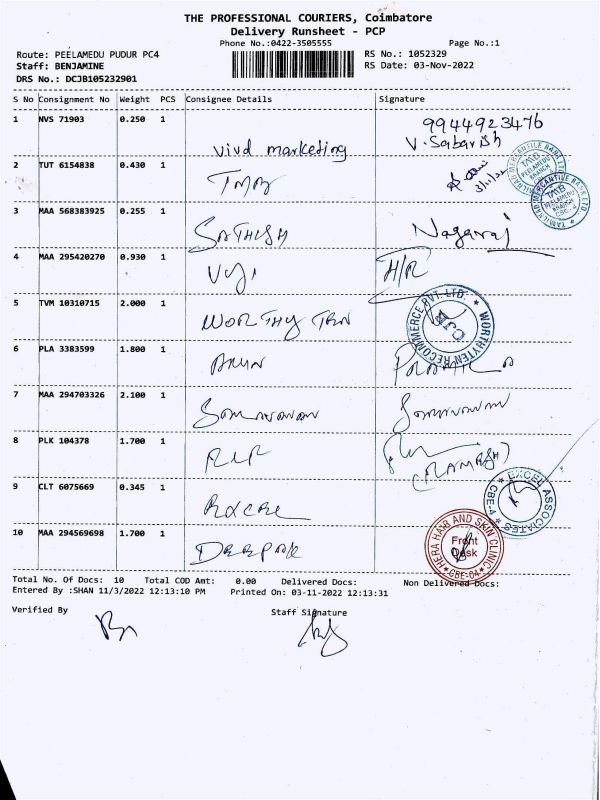 THE PROFESSIONAL COURIERS, Coimbatore
Delivery Runsheet - PCP
Phone No.:0422-3505555
Page No.:1
Route: PEELAMEDU PUDUR PC4
RS No.: 1052329
Staff: BENJAMINE
RS Date: 03-Nov-2022
DRS No.: DCJB105232901
S No Consignment No Weight PCS Consignee Details Signature
1 NVS 71903 0.250 1 vivd marketing 9944923476
V. Sabarish
2 TUT 6154838 0.430 1 TMB 3/11/22
TAMILNAD MERCANTILE BANK LTD. TMB PEELAMEDU BRANCH
TAMILNAD MERCANTILE BANK LTD. TMB PEELAMEDU BRANCH CBE-4
3 MAA 568383925 0.255 1 SATHISH Nagaraj
4 MAA 295420270 0.930 1 H/R
5 TVM 10310715 2.000 1 WORTHY TEN
WORTHYTEN RECOMMERCE PVT. LTD.
6 PLA 3383599 1.800 1 ARUN
7 MAA 294703326 2.100 1
8 PLK 104378 1.700 1 (RAMESH)
9 CLT 6075669 0.345 1
EXCEL ASSOCIATES CBE-4
10 MAA 294569698 1.700 1 DEEPAK
HERA HAIR AND SKIN CLINIC Front Desk CBE-04
Total No. Of Docs: 10 Total COD Amt: 0.00 Delivered Docs: Non Delivered Docs:
Entered By :SHAN 11/3/2022 12:13:10 PM Printed On: 03-11-2022 12:13:31
Verified By Staff Signature